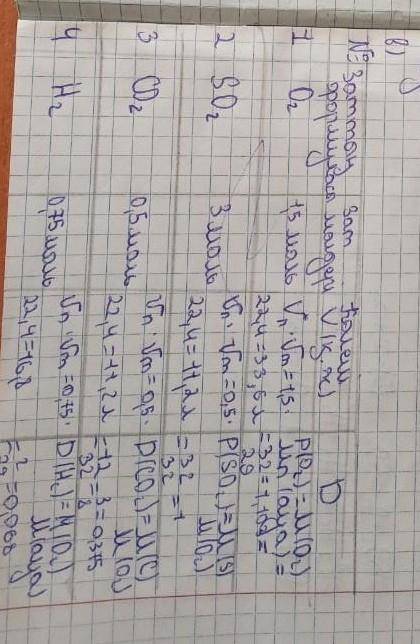 в)
№ Заттын формуласы зат мөлдері көлемі V(қ.ж) D
1 O₂ 1,5 моль Vn · Vm = 1,5 · 22,4 = 33,6 л D(O₂) = M(O₂) / Mr(ауа) = = 32/29 = 1,103 =
2 SO₂ 3 моль Vn · Vm = 0,5 · 22,4 = 11,2 л P(SO₂) = M(S) / M(O₂) = 32/32 = 1
3 CO₂ 0,5 моль Vn · Vm = 0,5 · 22,4 = 11,2 л P(CO₂) = M(C) / M(O₂) = 12/32 = 3/8 = 0,375
4 H₂ 0,75 моль Vn · Vm = 0,75 · 22,4 = 16,8 D(H₂) = M(O₂) / M(ауа) = 2/29 = 0,068